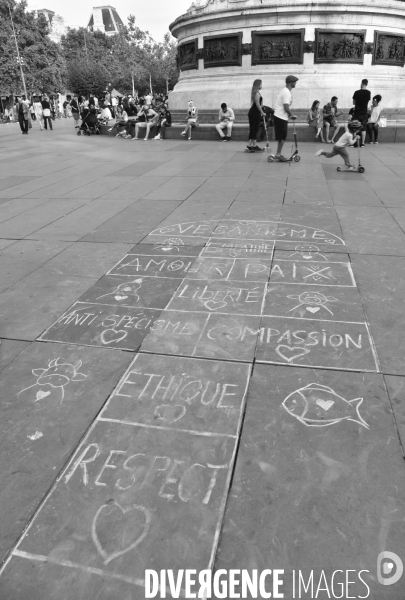 VEGANISME
EMPATHIE
AMOUR PAIX
LIBERTÉ
ANTI SPÉCISME COMPASSION
ETHIQUE
RESPECT
DIVERGENCE IMAGES